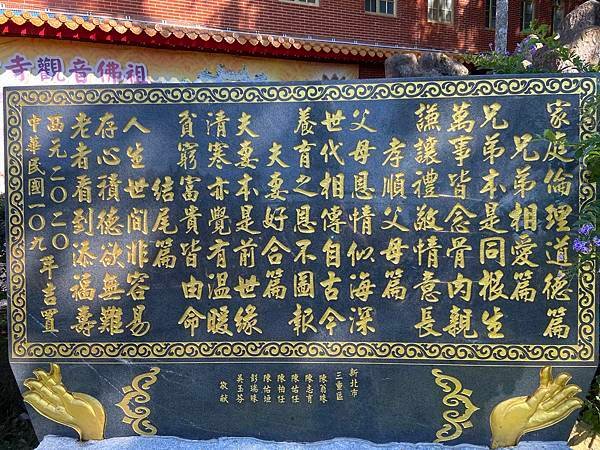 寺觀音佛祖
家庭倫理道德篇
兄弟相愛篇
兄弟本是同根生
萬事皆念骨肉親
謙讓禮敬情意長
孝順父母篇
父母恩情似海深
世代相傳自古今
養育之恩不圖報
夫妻好合篇
夫妻本是前世緣
清寒亦覺有溫暖
貧窮富貴皆由命
結尾篇
人生世間非容易
存心積德欲無難
老者看到添福壽
西元二〇二〇
中華民國一〇九年吉置
新北市
三重區
陳志育
陳柏任
彭瑞珠
吳玉芬
敬献